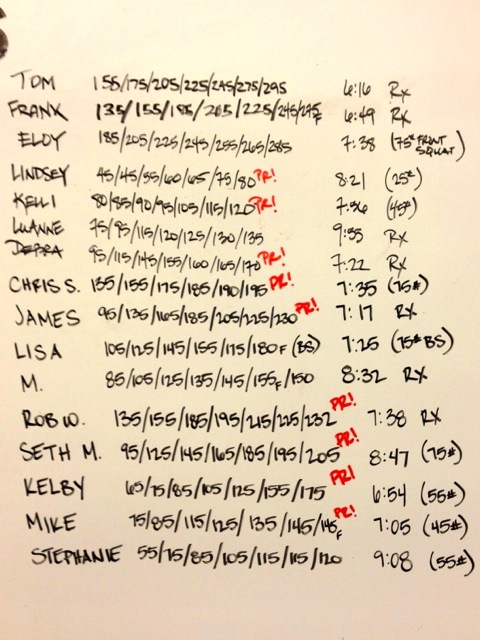 S
TOM 155/175/205/225/245/275/295 6:16 Rx
FRANK 135/155/185/205/225/245/275F 6:49 Rx
ELOY 185/205/225/245/255/265/285 7:38 (75# FRONT SQUAT)
LINDSEY 45/45/55/60/65/75/80 PR! 8:21 (25#)
KELLI 80/85/90/95/105/115/120 PR! 7:56 (45#)
LUANNE 75/95/115/120/125/130/135 9:55 Rx
DEBRA 95/115/145/155/160/165/170 PR! 7:22 Rx
CHRIS S. 135/155/175/185/190/195 PR! 7:35 (75#)
JAMES 95/135/165/185/205/225/230 PR! 7:17 RX
LISA 105/125/145/155/175/180F (BS) 7:25 (75# BS)
M. 85/105/125/135/145/155F/150 8:32 RX
ROB W. 135/155/185/195/215/225/232 PR! 7:38 RX
SETH M. 95/125/145/165/185/195/205 PR! 8:47 (75#)
KELBY 65/75/85/105/125/155/175 PR! 6:54 (55#)
MIKE 75/85/115/125/135/145/145F PR! 7:05 (45#)
STEPHANIE 55/75/85/105/115/115/120 9:08 (55#)